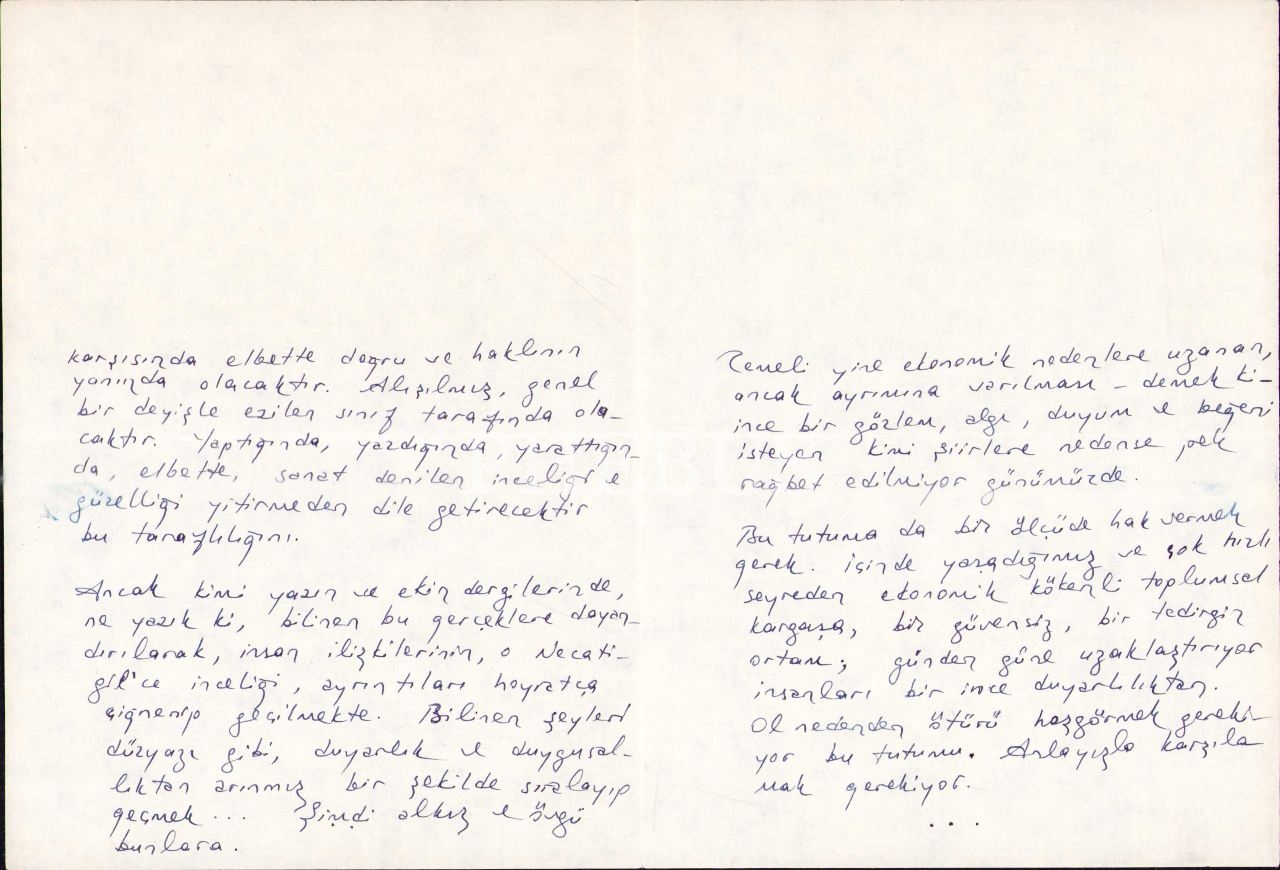 karşısında elbette doğru ve haklının
yanında olacaktır. Alışılmış, genel
bir deyişle ezilen sınıf tarafında ola-
caktır. Yaptığında, yazdığında, yarattığın-
da, elbette, sanat denilen inceliği ve
güzelliği yitirmeden dile getirecektir
bu taraflılığını.
Ancak kimi yazın ve ekin dergilerinde,
ne yazık ki, bilinen bu gerçeklere dayan-
dırılarak, insan ilişkilerinin, o Necati-
gil'ce inceliği, ayrıntıları hoyratça
çiğnenip geçilmekte. Bilinen şeyleri
düzyazı gibi, duyarlık ve duygusal-
lıktan arınmış bir şekilde sıralayıp
geçmek... Şimdi alkış ve övgü
bunlara.
Temeli yine ekonomik nedenlere uzanan,
ancak ayrımına varılması - demek ki -
ince bir gözlem, algı, duyum ve beğeni
isteyen kimi şiirlere nedense pek
rağbet edilmiyor günümüzde.
Bu tutuma da bir ölçüde hak vermek
gerek. İçinde yaşadığımız ve çok hızlı
seyreden ekonomik kökenli toplumsal
kargaşa, bir güvensiz, bir tedirgin
ortam; günden güne uzaklaştırıyor
insanları bir ince duyarlılıktan.
Ol nedenden ötürü hoşgörmek gereki-
yor bu tutumu. Anlayışla karşıla
mak gerekiyor.
...